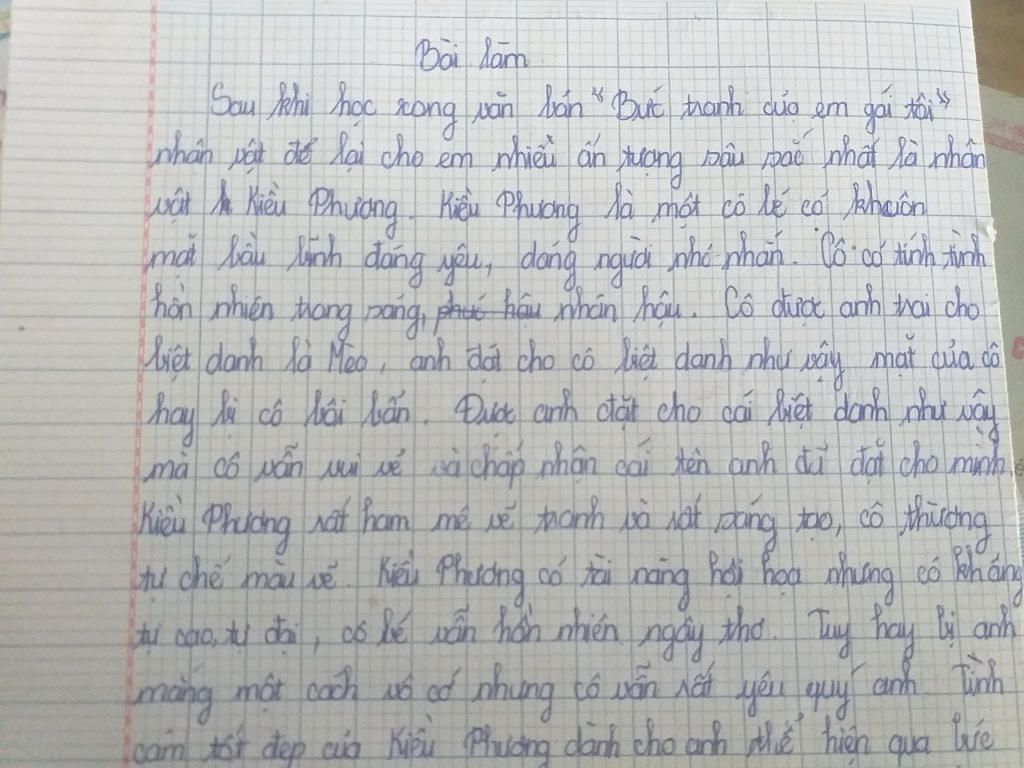 Bài làm
Sau khi học xong văn bản "Bức tranh của em gái tôi"
nhân vật để lại cho em nhiều ấn tượng sâu sắc nhất là nhân
vật Kiều Phương. Kiều Phương là một cô bé có khuôn
mặt bầu bĩnh đáng yêu, dáng người nhỏ nhắn. Cô có tính tình
hồn nhiên trong sáng, phúc hậu nhân hậu. Cô được anh trai cho
biệt danh là Mèo, anh đặt cho cô biệt danh như vậy mặt của cô
hay bị cô bôi bẩn. Được anh đặt cho cái biệt danh như vậy
mà cô vẫn vui vẻ và chấp nhận cái tên anh đã đặt cho mình
Kiều Phương rất ham mê vẽ tranh và rất sáng tạo, cô thường
tự chế màu vẽ. Kiều Phương có tài năng hội họa nhưng cô không
tự cao, tự đại, cô bé vẫn hồn nhiên ngây thơ. Tuy hay bị anh
mắng một cách vô cớ nhưng cô vẫn rất yêu quý anh Tình
cảm tốt đẹp của Kiều Phương dành cho anh thể hiện qua bức